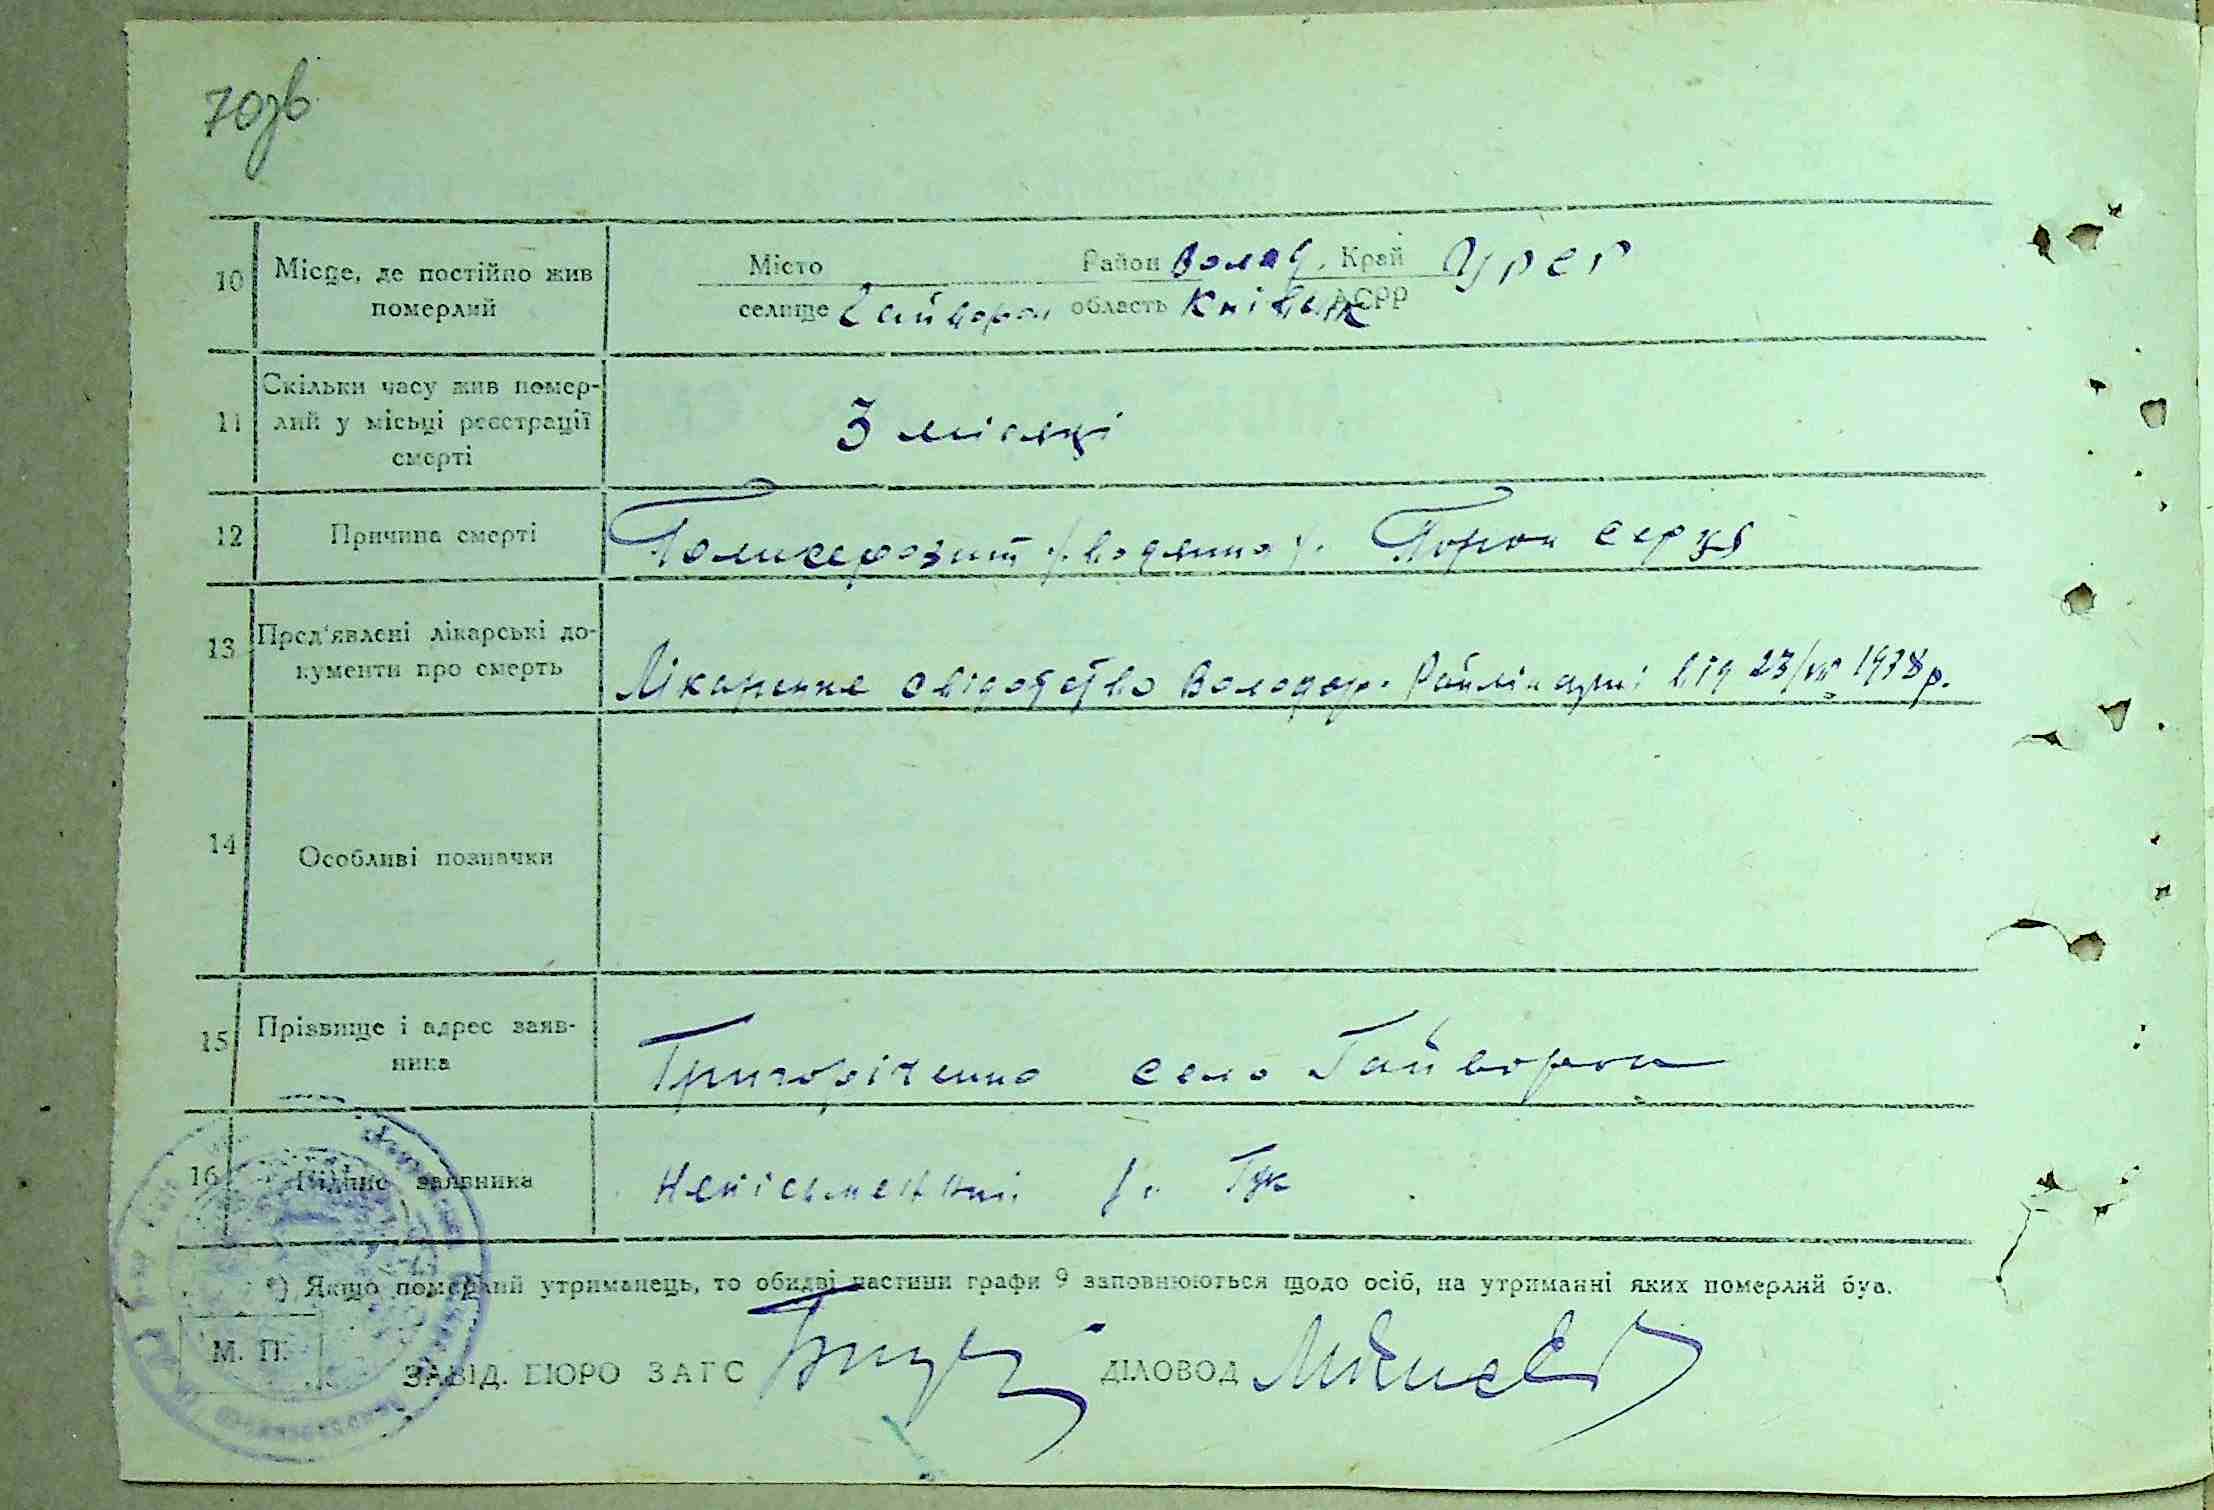 70зв
10 Місце, де постійно жив Місто Район Волод. Край УРСР
померлий селище Гайворон область Київськ АСРР
Скільки часу жив помер-
11 лий у місьці реєстрації 3 місяці
смерті
12 Причина смерті Поликсерозит /водянка/. Порок серця
13 Пред'явлені лікарські до-
кументи про смерть Лікарське свідотство Володар. Райлікарні від 23/VII 1938 р.
14 Особливі позначки
15 Прізвище і адрес заяв-
ника Григоріченко село Гайворон
16 Підпис заявника Неписьменний
*) Якщо померлий утриманець, то обидві частини графи 9 заповнюються щодо осіб, на утриманні яких померлий був.
М. П.
ЗАВІД. БЮРО ЗАГС ДІЛОВОД